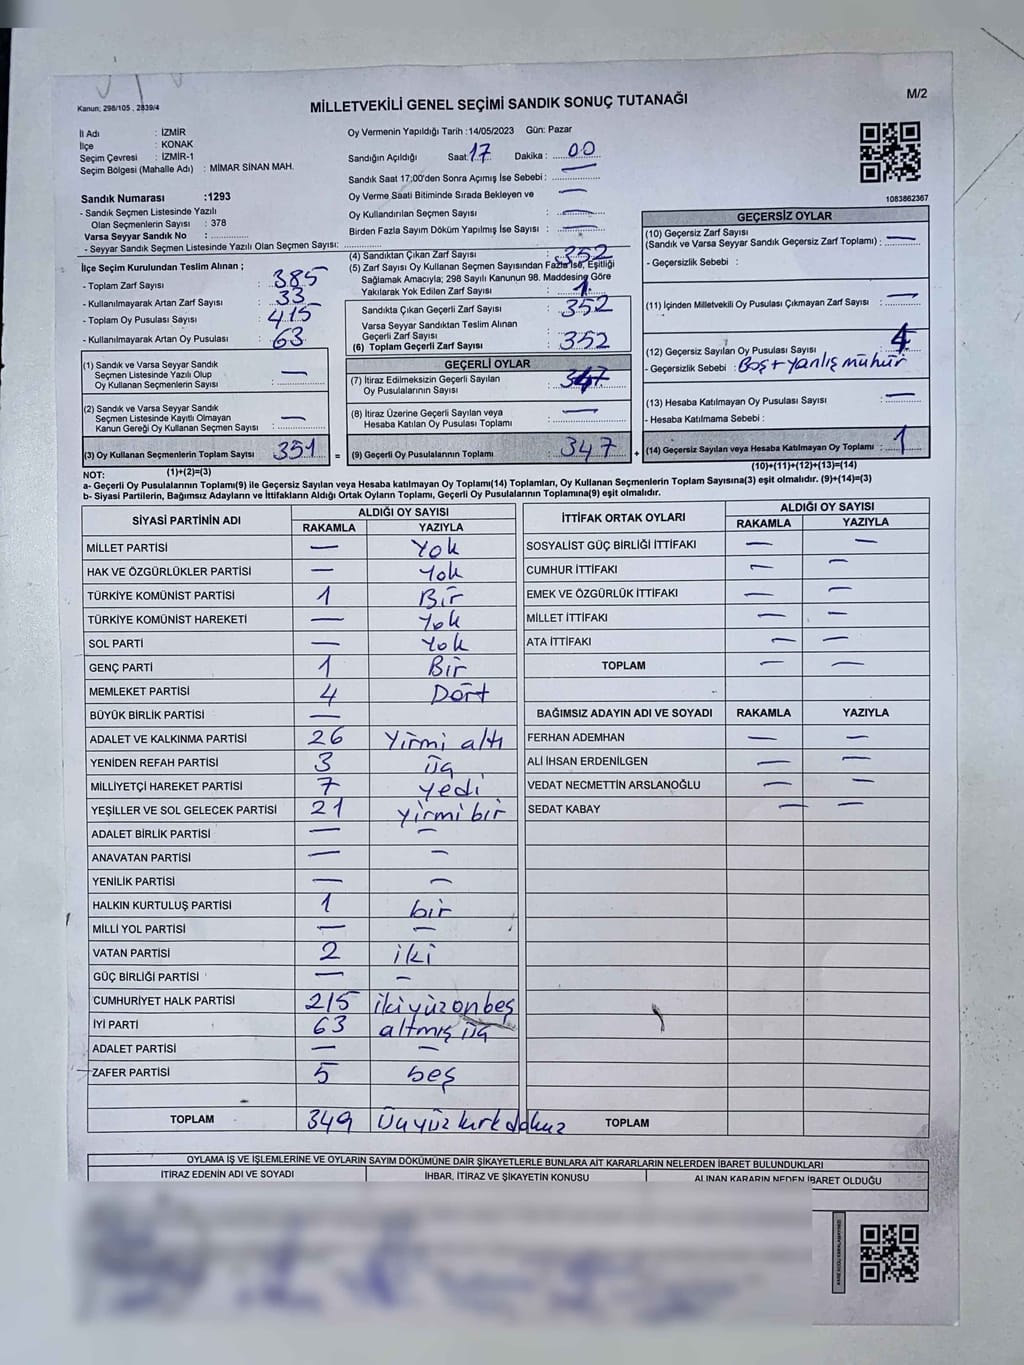 Kanun; 298/105 , 2839/4
MİLLETVEKİLİ GENEL SEÇİMİ SANDIK SONUÇ TUTANAĞI
M/2
İl Adı : İZMİR
İlçe : KONAK
Seçim Çevresi : İZMİR-1
Seçim Bölgesi (Mahalle Adı) : MİMAR SİNAN MAH.
Sandık Numarası :1293
- Sandık Seçmen Listesinde Yazılı
Olan Seçmenlerin Sayısı : 378
Varsa Seyyar Sandık No :
- Seyyar Sandık Seçmen Listesinde Yazılı Olan Seçmen Sayısı:
İlçe Seçim Kurulundan Teslim Alınan ;
- Toplam Zarf Sayısı : 385
- Kullanılmayarak Artan Zarf Sayısı : 33
- Toplam Oy Pusulası Sayısı : 415
- Kullanılmayarak Artan Oy Pusulası : 63
(1) Sandık ve Varsa Seyyar Sandık
Seçmen Listesinde Yazılı Olup
Oy Kullanan Seçmenlerin Sayısı : —
(2) Sandık ve Varsa Seyyar Sandık
Seçmen Listesinde Kayıtlı Olmayan
Kanun Gereği Oy Kullanan Seçmen Sayısı : —
(3) Oy Kullanan Seçmenlerin Toplam Sayısı 351
(1)+(2)=(3)
Oy Vermenin Yapıldığı Tarih :14/05/2023 Gün: Pazar
Sandığın Açıldığı Saat: 17 Dakika : 00
Sandık Saat 17:00'den Sonra Açımış İse Sebebi : —
Oy Verme Saati Bitiminde Sırada Bekleyen ve —
Oy Kullandırılan Seçmen Sayısı : —
Birden Fazla Sayım Döküm Yapılmış İse Sayısı : —
(4) Sandıktan Çıkan Zarf Sayısı : 352
(5) Zarf Sayısı Oy Kullanan Seçmen Sayısından Fazla İse, Eşitliği
Sağlamak Amacıyla; 298 Sayılı Kanunun 98. Maddesine Göre
Yakılarak Yok Edilen Zarf Sayısı : 1
Sandıkta Çıkan Geçerli Zarf Sayısı : 352
Varsa Seyyar Sandıktan Teslim Alınan
Geçerli Zarf Sayısı :
(6) Toplam Geçerli Zarf Sayısı 352
GEÇERLİ OYLAR
(7) İtiraz Edilmeksizin Geçerli Sayılan
Oy Pusulalarının Sayısı : 347
(8) İtiraz Üzerine Geçerli Sayılan veya
Hesaba Katılan Oy Pusulası Toplamı : —
= (9) Geçerli Oy Pusulalarının Toplamı : 347 +
1083862367
GEÇERSİZ OYLAR
(10) Geçersiz Zarf Sayısı
(Sandık ve Varsa Seyyar Sandık Geçersiz Zarf Toplamı) : —
- Geçersizlik Sebebi :
(11) İçinden Milletvekili Oy Pusulası Çıkmayan Zarf Sayısı : —
(12) Geçersiz Sayılan Oy Pusulası Sayısı : 4
- Geçersizlik Sebebi : Boş + yanlış mühür
(13) Hesaba Katılmayan Oy Pusulası Sayısı : —
- Hesaba Katılmama Sebebi :
(14) Geçersiz Sayılan veya Hesaba Katılmayan Oy Toplamı : 1
(10)+(11)+(12)+(13)=(14)
NOT:
a- Geçerli Oy Pusulalarının Toplamı(9) ile Geçersiz Sayılan veya Hesaba katılmayan Oy Toplamı(14) Toplamları, Oy Kullanan Seçmenlerin Toplam Sayısına(3) eşit olmalıdır. (9)+(14)=(3)
b- Siyasi Partilerin, Bağımsız Adayların ve İttifakların Aldığı Ortak Oyların Toplamı, Geçerli Oy Pusulalarının Toplamına(9) eşit olmalıdır.
SİYASİ PARTİNİN ADI ALDIĞI OY SAYISI
RAKAMLA YAZIYLA
MİLLET PARTİSİ — Yok
HAK VE ÖZGÜRLÜKLER PARTİSİ — Yok
TÜRKİYE KOMÜNİST PARTİSİ 1 Bir
TÜRKİYE KOMÜNİST HAREKETİ — Yok
SOL PARTİ — Yok
GENÇ PARTİ 1 Bir
MEMLEKET PARTİSİ 4 Dört
BÜYÜK BİRLİK PARTİSİ —
ADALET VE KALKINMA PARTİSİ 26 Yirmi altı
YENİDEN REFAH PARTİSİ 3 üç
MİLLİYETÇİ HAREKET PARTİSİ 7 yedi
YEŞİLLER VE SOL GELECEK PARTİSİ 21 yirmi bir
ADALET BİRLİK PARTİSİ — —
ANAVATAN PARTİSİ — —
YENİLİK PARTİSİ — —
HALKIN KURTULUŞ PARTİSİ 1 bir
MİLLİ YOL PARTİSİ — —
VATAN PARTİSİ 2 iki
GÜÇ BİRLİĞİ PARTİSİ — —
CUMHURİYET HALK PARTİSİ 215 iki yüz on beş
İYİ PARTİ 63 altmış üç
ADALET PARTİSİ — —
ZAFER PARTİSİ 5 beş
TOPLAM 349 Üç yüz kırk dokuz
İTTİFAK ORTAK OYLARI ALDIĞI OY SAYISI
RAKAMLA YAZIYLA
SOSYALİST GÜÇ BİRLİĞİ İTTİFAKI — —
CUMHUR İTTİFAKI — —
EMEK VE ÖZGÜRLÜK İTTİFAKI — —
MİLLET İTTİFAKI — —
ATA İTTİFAKI — —
TOPLAM — —
BAĞIMSIZ ADAYIN ADI VE SOYADI RAKAMLA YAZIYLA
FERHAN ADEMHAN — —
ALİ İHSAN ERDENİLGEN — —
VEDAT NECMETTİN ARSLANOĞLU — —
SEDAT KABAY — —
TOPLAM
OYLAMA İŞ VE İŞLEMLERİNE VE OYLARIN SAYIM DÖKÜMÜNE DAİR ŞİKAYETLERLE BUNLARA AİT KARARLARIN NELERDEN İBARET BULUNDUKLARI
İTİRAZ EDENİN ADI VE SOYADI İHBAR, İTİRAZ VE ŞİKAYETİN KONUSU ALINAN KARARIN NEDEN İBARET OLDUĞU